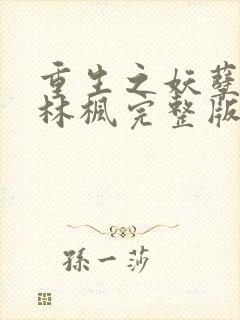 重生之妖孽
林楓完整版
孫一莎